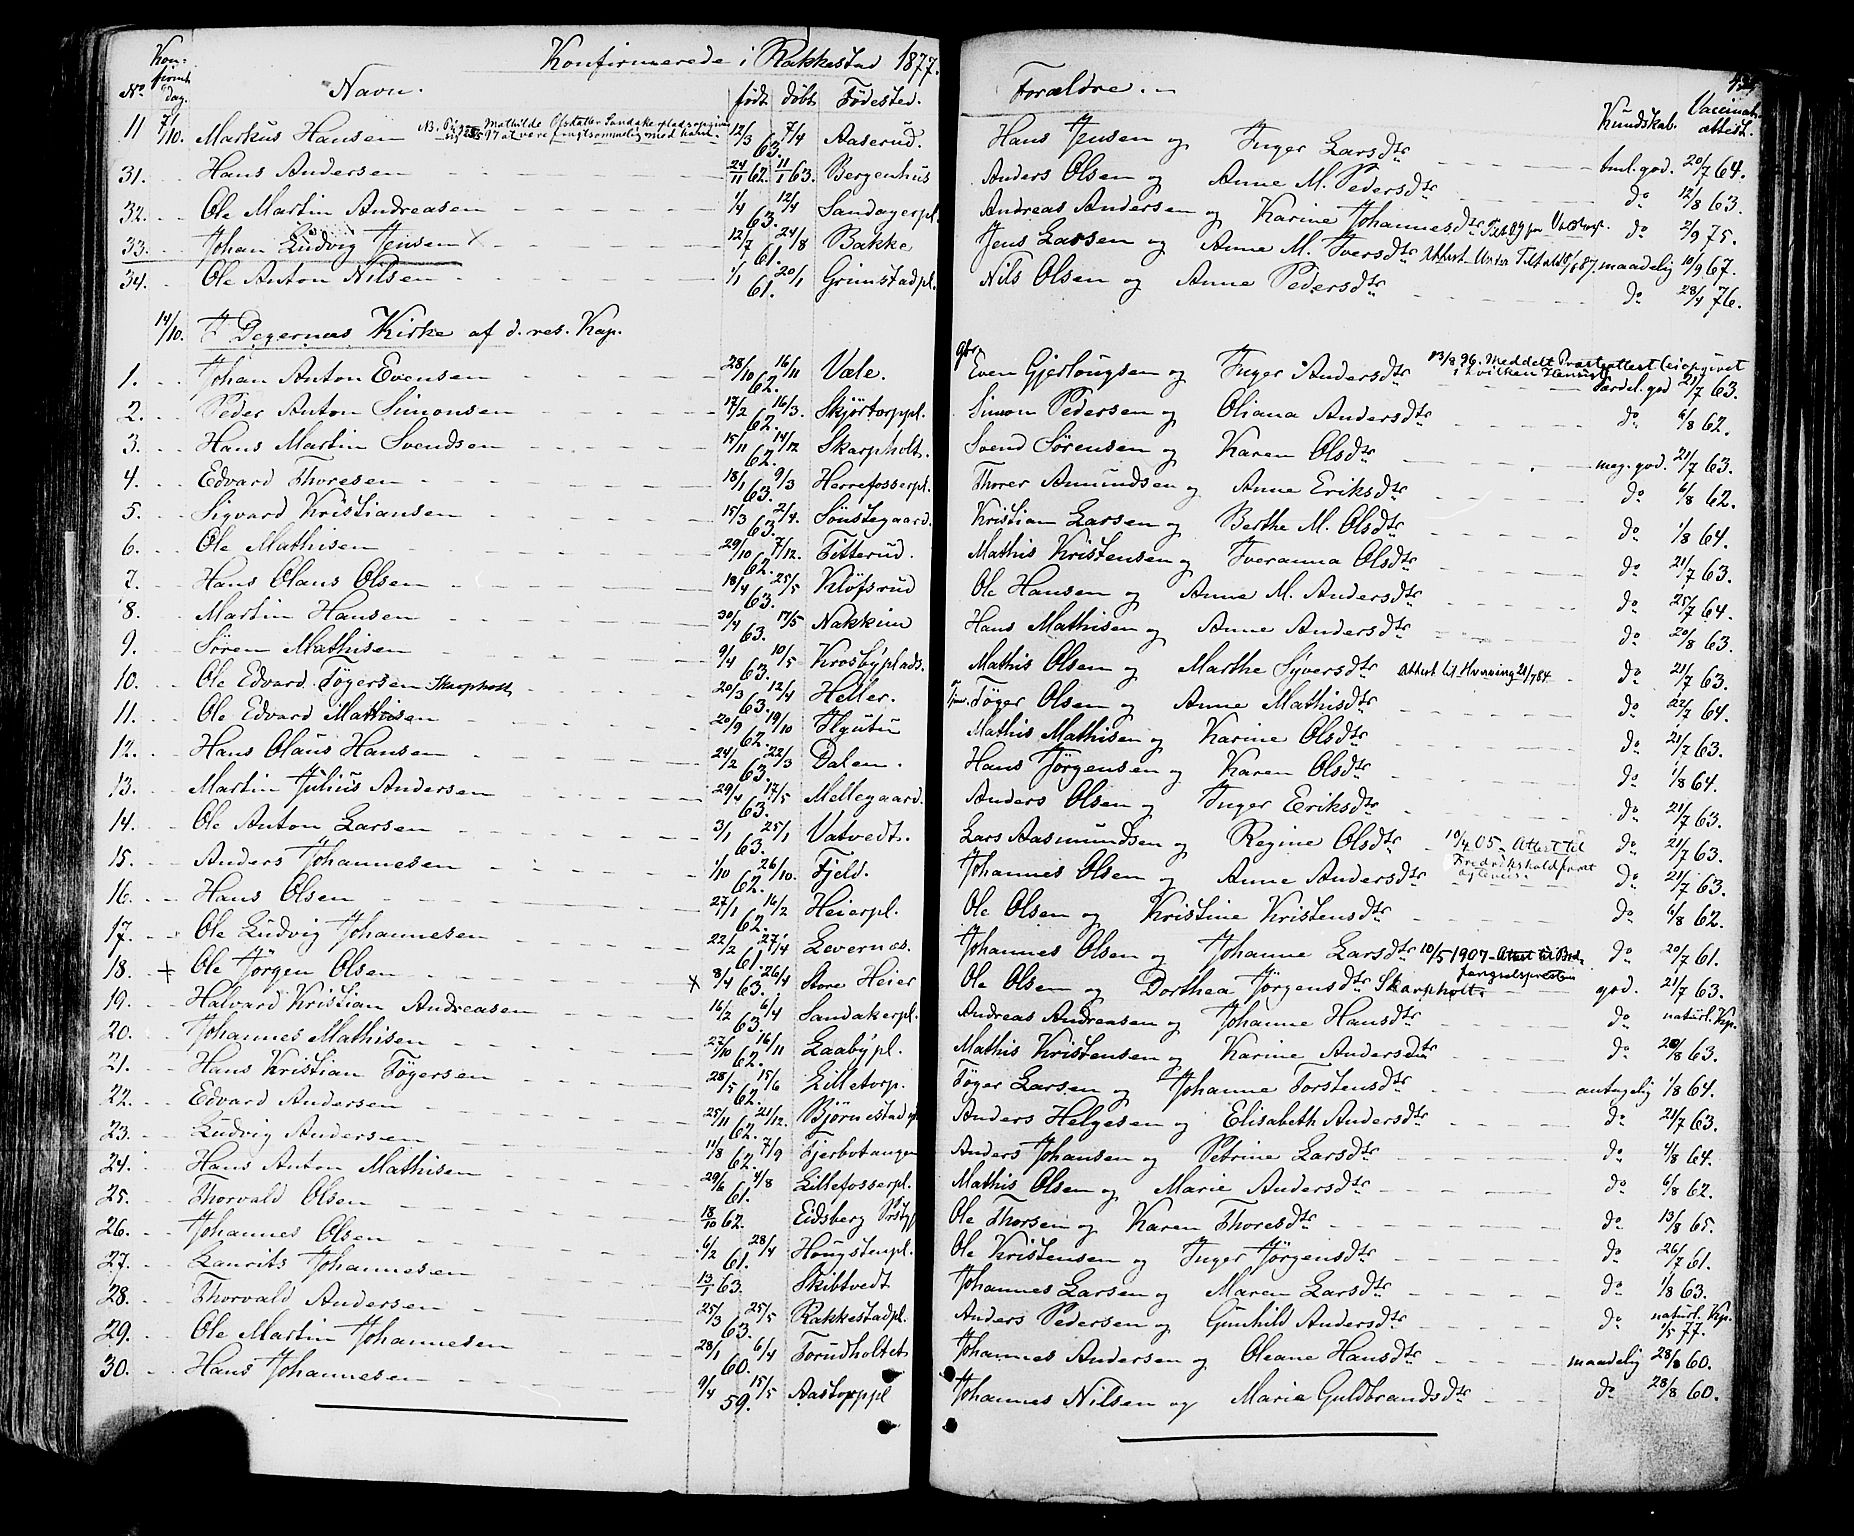 Konfirmerede i Rakkestad 1877. Forældre.
No. Konfirmt. dag. Navn. født døbt Fødested. Kundskab. Vaccinat. attest.
11 7/10. Markus Hansen 12/3 63. 7/4 Aaserud. Hans Jensen og Inger Larsdtr tml. god. 20/7 64.
31. Hans Andersen 24/11 62. 11/1 63. Bergenhus Anders Olsen og Anne M. Pedersdtr do 12/8 63.
32. Ole Martin Andreasen 1/4 63. 12/4 Sandagerpl. Andreas Andersen og Karine Johannesdtr do 2/9 75.
33. Johan Ludvig Jensen X 12/7 61. 24/8 Bakke Jens Larsen og Anne M. Iversdtr maadelig 10/9 67.
34. Ole Anton Nilsen 1/1 61. 20/1 Grimstadpl. Nils Olsen og Anne Pedersdtr do 28/4 76.
14/10. I Degernæs Kirke af d. res. Kap.
1. Johan Anton Evensen 28/10 62. 16/11 Væle. Even Gjerlougsen og Inger Andersdtr 13/8 96. Meddelt særdel. god 21/7 63.
2. Peder Anton Simonsen 17/2 62. 16/3. Skjørtorppl. Simon Pedersen og Oliana Andersdtr do 6/8 62.
3. Hans Martin Svendsen 15/11 62. 14/12 Skarpholt. Svend Sørensen og Karen Olsdtr meg. god. 21/7 63.
4. Edvard Thoresen 18/1 63. 9/3 Herrefosserpl. Thorer Amundsen og Anne Eriksdtr do 6/8 62.
5. Sigvard Kristiansen 15/3 63. 2/4. Sönstegaard. Kristian Larsen og Berthe M. Olsdtr do 1/8 64.
6. Ole Mathisen 29/10 62. 7/12. Titterud. Mathis Kristensen og Iveranna Olsdtr do 21/7 63.
7. Hans Olaus Olsen 18/4 63. 25/5 Klöfsrud Ole Hansen og Anne M. Andersdtr do 25/7 64.
8. Martin Hansen 30/4 63. 17/5 Nakkim Hans Mathisen og Anne Andersdtr do 20/8 63.
9. Sören Mathisen 9/4 63. 10/5 Krosbyplads. Mathis Olsen og Marthe Syversdtr Attest til Hvervning 21/7 84 do 21/7 63.
10. Ole Edvard Tøgersen Skarpholt 20/3 63. 12/4 Heller. Tøger Olsen og Anne Mathisdtr do 22/7 64.
11. Ole Edvard Mathisen 20/9 62. 19/10 Mathis Mathisen og Karine Olsdtr do 21/7 63.
12. Hans Olaus Hansen 24/2 63. 22/3 Dalen. Hans Jørgensen og Karen Olsdtr do 1/8 64.
13. Martin Julius Andersen 29/4 63. 17/5 Mellegaard. Anders Olsen og Inger Eriksdtr do 21/7 63.
14. Ole Anton Larsen 3/1 63. 25/1 Vatvedt. Lars Aasmundsen og Regine Olsdtr do 21/7 63.
15. Anders Johannesen 1/10 62. 26/10. Fjeld. Johannes Olsen og Anne Andersdtr 10/4 05 Attest til Fredrikshald do 21/7 63.
16. Hans Olsen 27/1 62. 16/2 Heierpl. Ole Olsen og Kristine Kristensdtr do 6/8 62.
17. Ole Ludvig Johannesen 22/2 61. 27/4 Levernæs. Johannes Olsen og Johanne Larsdtr 10/5 1907 Attest til do 20/7 61.
18. + Ole Jørgen Olsen X 8/4 63. 26/4 Store Heier Ole Olsen og Dorthea Jørgensdtr Skarpholt. god. 21/7 63.
19. Halvard Kristian Andreasen 16/2 63. 6/4 Sandakerpl. Andreas Andreasen og Johanne Hansdtr do naturl. Kp.
20. Johannes Mathisen 27/10 62. 16/11 Laabypl. Mathis Kristensen og Karine Andersdtr do 20/8 63.
21. Hans Kristian Tøgersen 28/5 62. 15/6 Lilletorp. Tøger Larsen og Johanne Torstensdtr antagelig 1/8 64.
22. Edvard Andersen 25/11 62. 21/12. Bjørnestad pl Anders Helgesen og Elisabeth Andersdtr do 21/7 63.
23. Ludvig Andersen 11/8 62. 7/9 Tjerbotangen Anders Johansen og Petrine Larsdtr do 4/8 64.
24. Hans Anton Mathisen 29/6 61. 4/8 Lillefosserpl. Mathis Olsen og Marie Andersdtr do 6/8 62.
25. Thorvald Olsen 18/10 62. Eidsberg Ole Thorsen og Karen Thoresdtr do 13/8 65.
26. Johannes Olsen 6/2 61. 28/4 Hougstenpl. Ole Kristensen og Inger Jørgensdtr do 26/7 61.
27. Laurits Johannesen 13/1 63. Skibtvedt Johannes Larsen og Maren Larsdtr do 1/8 63.
28. Thorvald Andersen 25/3 63. 25/5 Rakkestadpl. Anders Pedersen og Gunhild Andersdtr do naturl. Kp. 1/5 77.
29. Ole Martin Johannesen 28/1 60. 6/4 Torudholtet Johannes Andersen og Oleane Hansdtr maadelig 28/8 60.
30. Hans Johannesen 9/4 59. 15/5 Aastorppl Johannes Nilsen og Marie Guldbrandsdtr do 28/8 60.